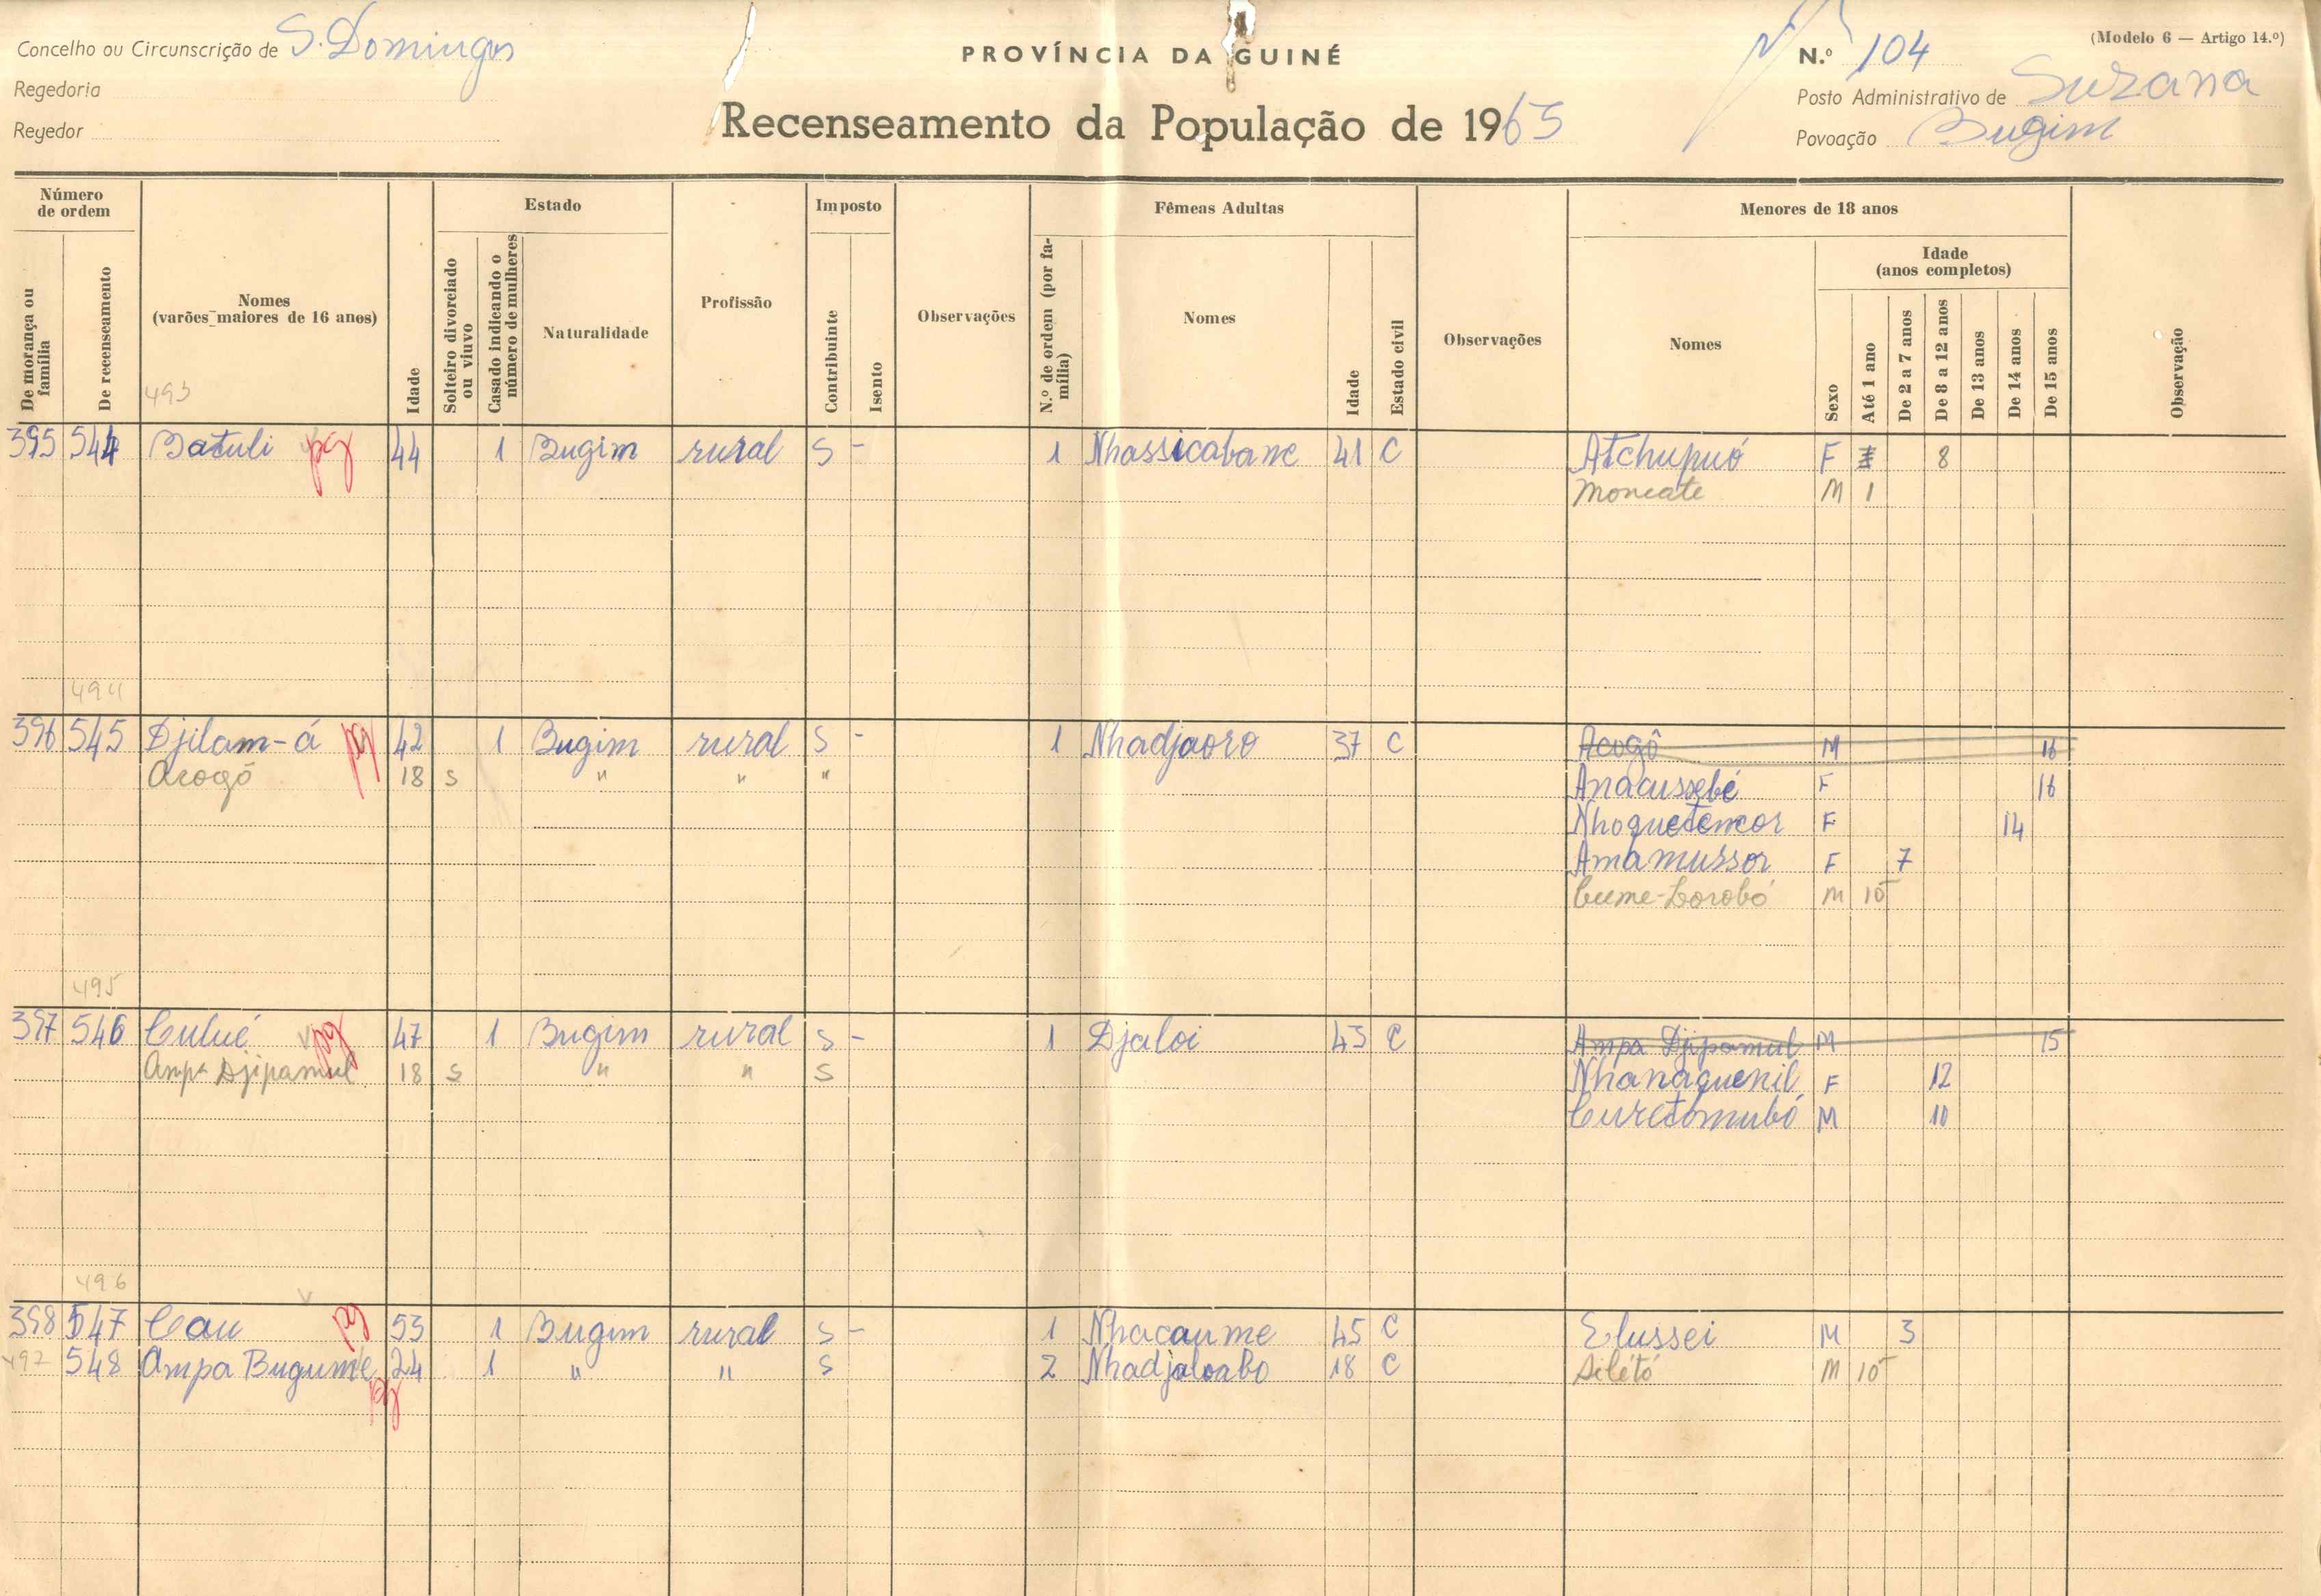 Concelho ou Circunscrição de S. Domingos
Regedoria
Regedor
PROVÍNCIA DA GUINÉ
Recenseamento da População de 1965
(Modelo 6 — Artigo 14.º)
N.º 104
Posto Administrativo de Suzana
Povoação Bugim
Número de ordem
De morança ou família
De recenseamento
Nomes (varões maiores de 16 anos)
493
Idade
Estado
Solteiro divorciado ou viuvo
Casado indicando o número de mulheres
Naturalidade
Profissão
Imposto
Contribuinte
Isento
Observações
Fêmeas Adultas
N.º de ordem (por família)
Nomes
Idade
Estado civil
Observações
Menores de 18 anos
Nomes
Sexo
Idade (anos completos)
Até 1 ano
De 2 a 7 anos
De 8 a 12 anos
De 13 anos
De 14 anos
De 15 anos
Observação
395 544 Batuli pg 44 1 Bugim rural S - 1 Nhassicabane 41 C Atchupuó F 8
Moncate M 1
494
396 545 Djilam-á pg 42 1 Bugim rural S - 1 Nhadjaoro 37 C Acogô M 16
Acogô 18 S " " " Anacussebé F 16
Nhoquetencor F 14
Amamussor F 7
Cume-Lorobó M 10
495
397 546 Culué pg 47 1 Bugim rural S - 1 Djaloi 43 C Ampa Djipamul M 15
Ampa Djipamul 18 S " " S Nhanaquenil F 12
Curetomubó M 10
496
398 547 Cau pg 53 1 Bugim rural S - 1 Nhacaume 45 C Elussei M 3
497 548 Ampa Bugume pg 24 1 " " S 2 Nhadjaloabo 18 C Silétó M 10